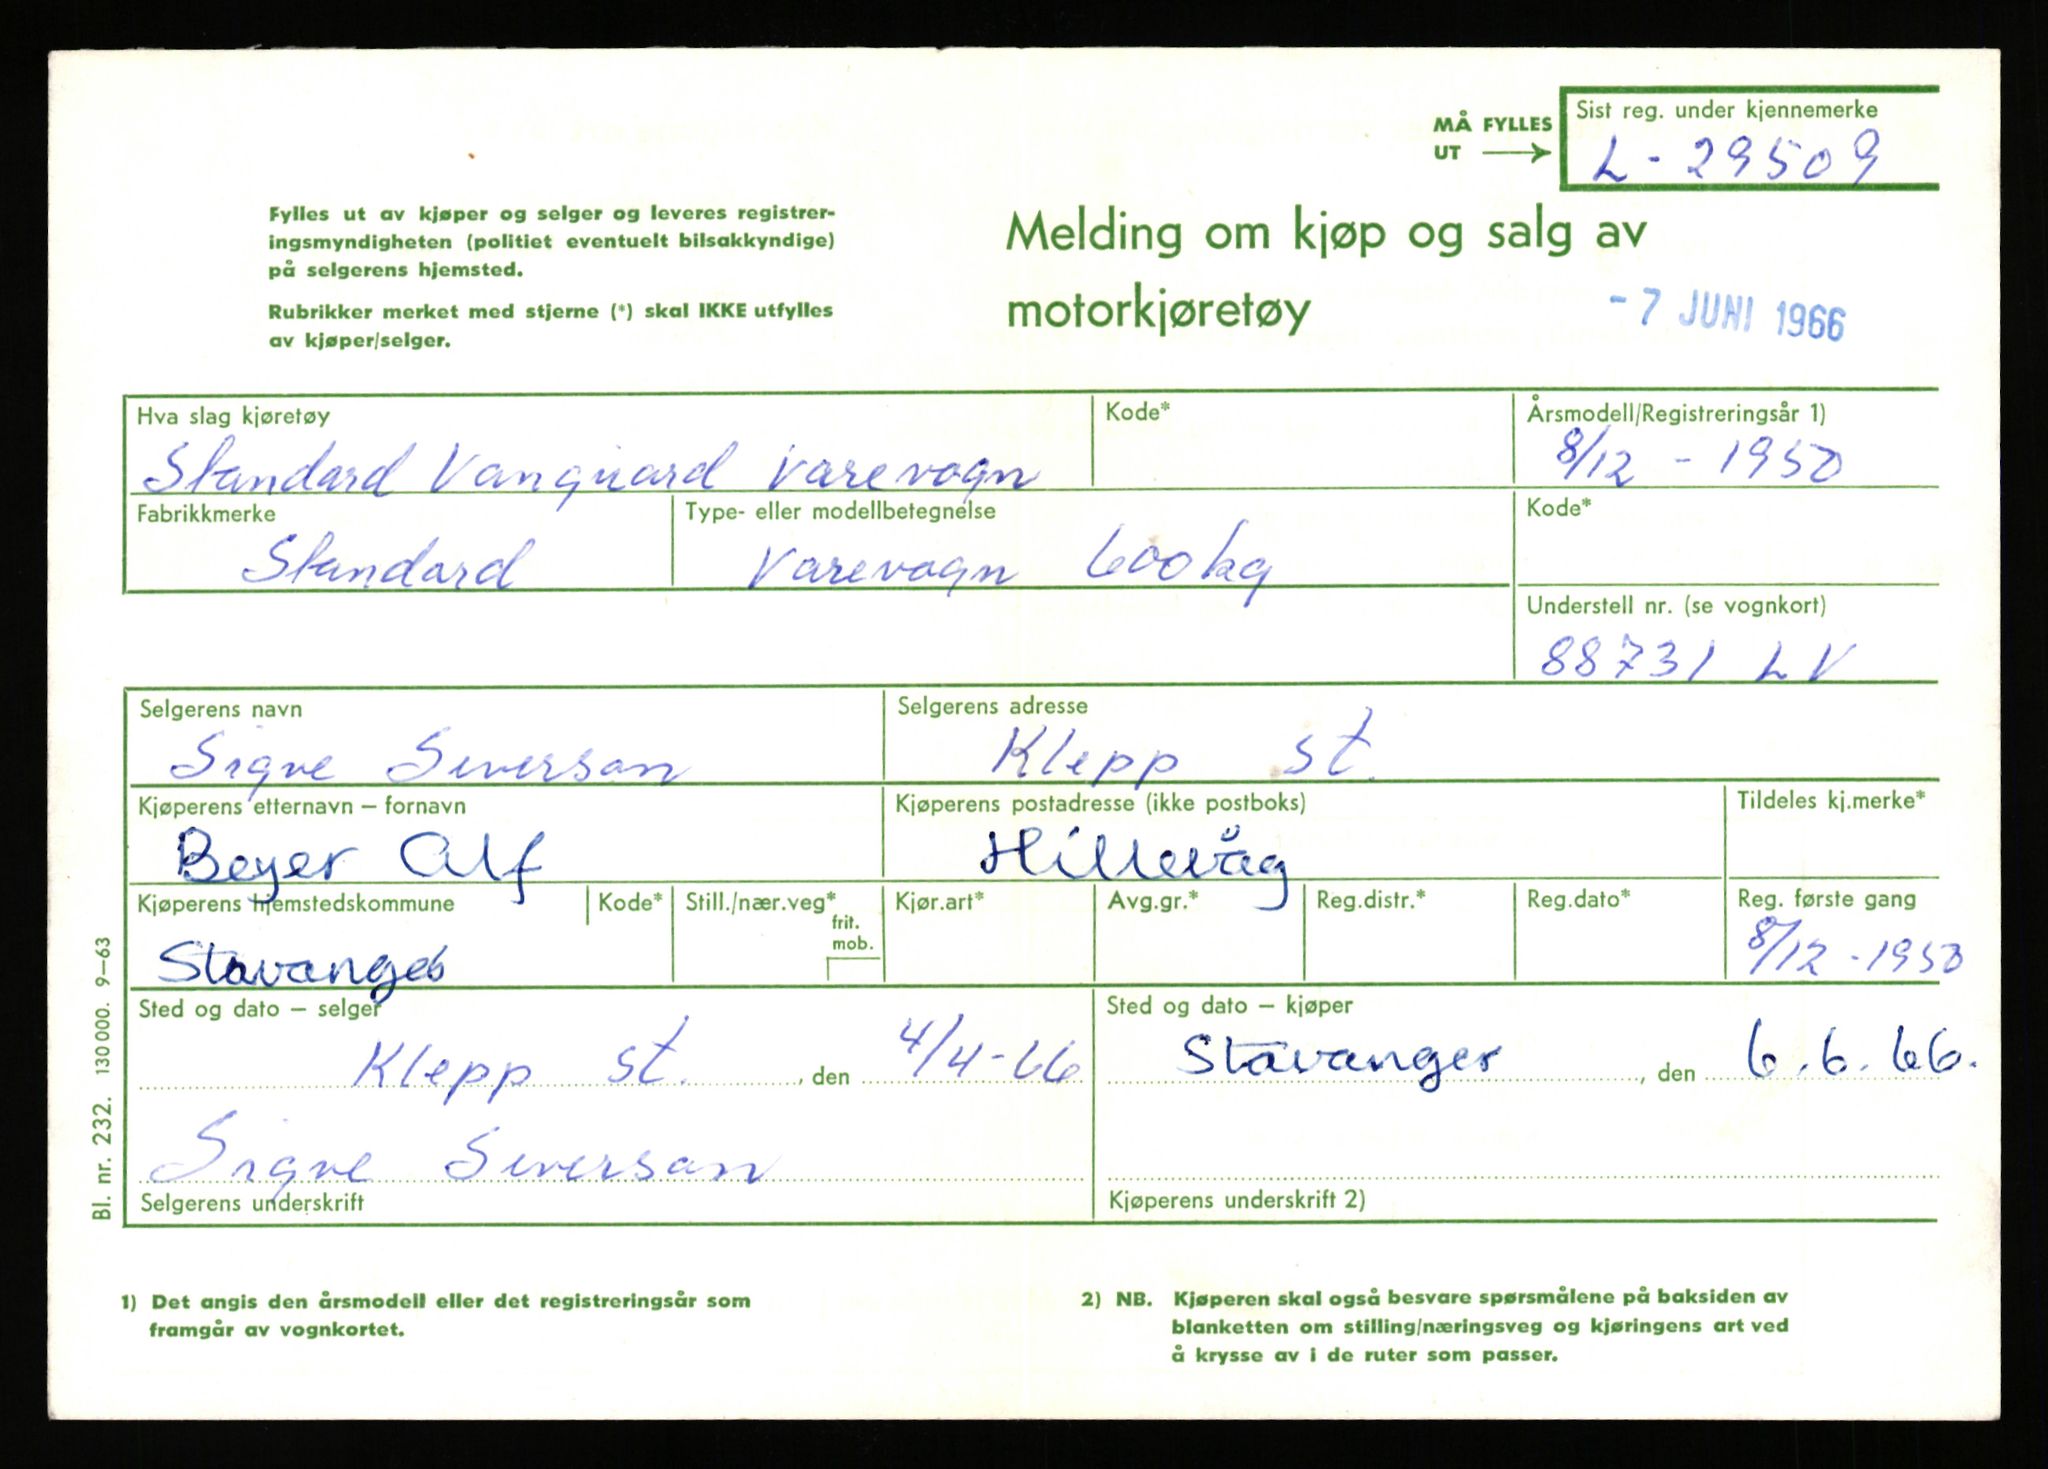 MÅ FYLLES
UT
Sist reg. under kjennemerke
L - 29509
Fylles ut av kjøper og selger og leveres registrer-
ingsmyndigheten (politiet eventuelt bilsakkyndige)
på selgerens hjemsted.
Rubrikker merket med stjerne (*) skal IKKE utfylles
av kjøper/selger.
Melding om kjøp og salg av
motorkjøretøy
- 7 JUNI 1966
Hva slag kjøretøy
Kode*
Årsmodell/Registreringsår 1)
Standard Vanguard Varevogn
8/12 - 1950
Fabrikkmerke
Type- eller modellbetegnelse
Kode*
Standard
Varevogn 600 kg
Understell nr. (se vognkort)
88731 LV
Selgerens navn
Selgerens adresse
Sigve Siversan
Klepp st.
Kjøperens etternavn – fornavn
Kjøperens postadresse (ikke postboks)
Tildeles kj.merke*
Beyer Alf
Hillevåg
Kjøperens hjemstedskommune
Kode*
Still./nær.veg*
frit.
mob.
Kjør.art*
Avg.gr.*
Reg.distr.*
Reg.dato*
Reg. første gang
Stavanger
8/12 - 1950
Sted og dato – selger
Sted og dato – kjøper
Klepp st. , den 4/4-66
Stavanger , den 6.6.66.
Sigve Siversan
Selgerens underskrift
Kjøperens underskrift 2)
Bl. nr. 232. 130000. 9–63
1) Det angis den årsmodell eller det registreringsår som
framgår av vognkortet.
2) NB. Kjøperen skal også besvare spørsmålene på baksiden av
blanketten om stilling/næringsveg og kjøringens art ved
å krysse av i de ruter som passer.